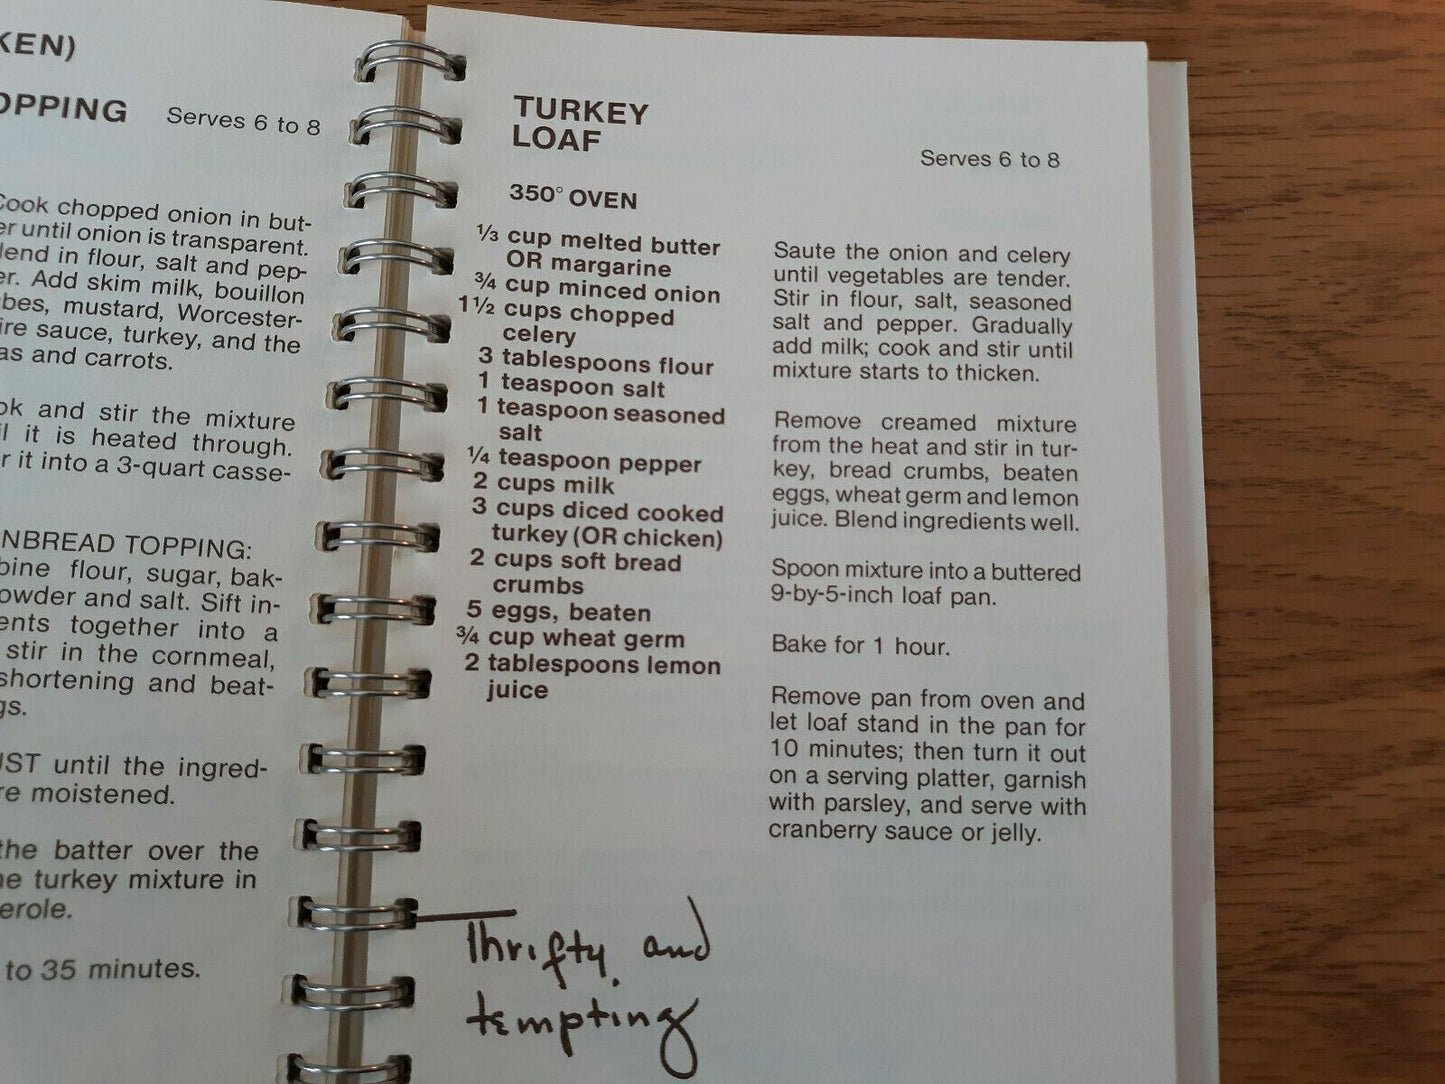 KEN)
OPPING Serves 6 to 8
Cook chopped onion in but-
er until onion is transparent.
lend in flour, salt and pep-
er. Add skim milk, bouillon
bes, mustard, Worcester-
ire sauce, turkey, and the
as and carrots.
ok and stir the mixture
il it is heated through.
r it into a 3-quart casse-
NBREAD TOPPING:
bine flour, sugar, bak-
owder and salt. Sift in-
ents together into a
stir in the cornmeal,
shortening and beat-
gs.
UST until the ingred-
re moistened.
the batter over the
he turkey mixture in
erole.
to 35 minutes.
TURKEY
LOAF
Serves 6 to 8
350° OVEN
⅓ cup melted butter
OR margarine
¾ cup minced onion
1½ cups chopped
celery
3 tablespoons flour
1 teaspoon salt
1 teaspoon seasoned
salt
¼ teaspoon pepper
2 cups milk
3 cups diced cooked
turkey (OR chicken)
2 cups soft bread
crumbs
5 eggs, beaten
¾ cup wheat germ
2 tablespoons lemon
juice
Saute the onion and celery
until vegetables are tender.
Stir in flour, salt, seasoned
salt and pepper. Gradually
add milk; cook and stir until
mixture starts to thicken.
Remove creamed mixture
from the heat and stir in tur-
key, bread crumbs, beaten
eggs, wheat germ and lemon
juice. Blend ingredients well.
Spoon mixture into a buttered
9-by-5-inch loaf pan.
Bake for 1 hour.
Remove pan from oven and
let loaf stand in the pan for
10 minutes; then turn it out
on a serving platter, garnish
with parsley, and serve with
cranberry sauce or jelly.
Thrifty and
tempting